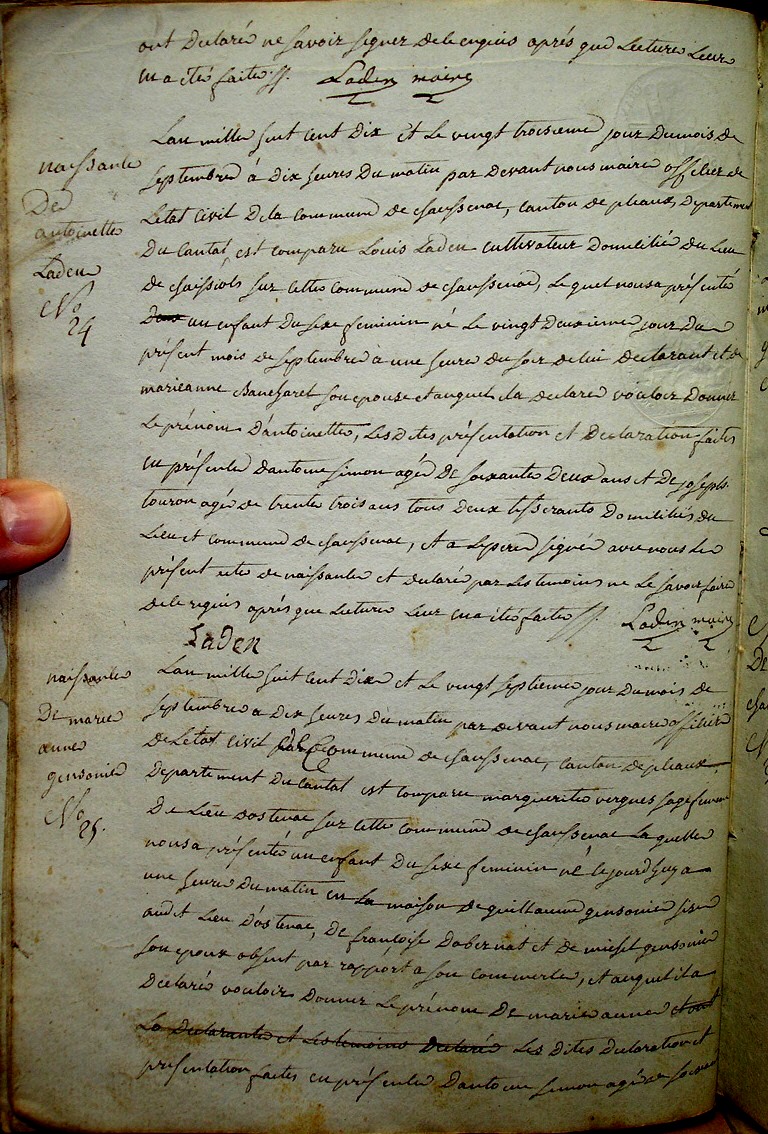 ont declaré ne savoir signer de le enquis aprés que Lecture Leur
en a eté faite ff. Laden maire
naissance
De
antoinette
Laden
No
24
Lan mille huit cent Dix et Le vingt troisieme jour du mois de
septembre à Dix heures Du matin par devant nous maire officier de
Letat civil De la commune de chaussenac, canton de pleaux, Departement
Du Cantal, est comparu Louis Laden cultivateur Domicilié Du Lieu
de chaissiols sur cette commune de chaussenac, Lequel nous a présenté
un enfant Du sexe feminin né Le vingt Deuxieme jour Du
présent mois de septembre a une heure du soir de lui declarant et de
marieanne Bancharel son epouse et auquel il a declaré vouloir Donner
Le prénom D'antoinette, Les Dites présentation et Declaration faites
en présence D'antoine simon agé De soixante Deux ans et De joseph
touron agé de trente trois ans tous deux tisserants Domiciliés du
Lieu et commune De chaussenac, et a Le pere signé avec nous Le
présent acte de naissance et declaré par Les temoins ne Le savoir faire
de le requis aprés que Lecture Leur en a eté faite ff. Laden maire
Laden
naissance
De marie
anne
gensonie
No
25.
Lan mille huit cent Dix et Le vingt septieme jour Du mois de
septembre a Dix heures Du matin par devant nous maire officier
de Letat civil De la Commune de chaussenac, canton de pleaux,
Departement Du Cantal est comparu marguerite vergnes sage femme
De Lieu Dostenac sur cette commune de chaussenac La quelle
nous a présenté un enfant Du sexe feminin né Le jourd'huy a
une heure Du matin en La maison de guillaume gensonie sise
audit Lieu D'ostenac, De françoise Dabernat et De michel gensonie
son epoux absent par rapport a son commerce, et auquel il a
Declaré vouloir Donner Le prénom De marie anne et ont
La Declarante et Les temoins Declaré Les Dites Declaration et
présentation faites en présence D'antoine simon agé de